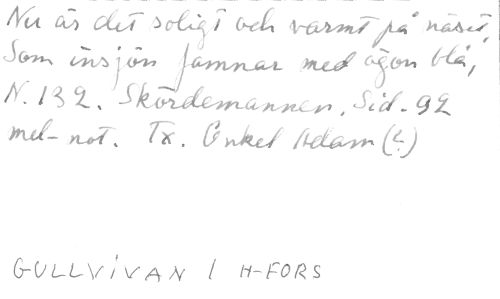 Nu är det soligt och varmt på näset,
Som insjön famnar med ögon blå,
N. 132. Skördemannen. Sid. 92
mel- not. Tx. Onkel Adam (?)
GULLVIVAN / H-FORS